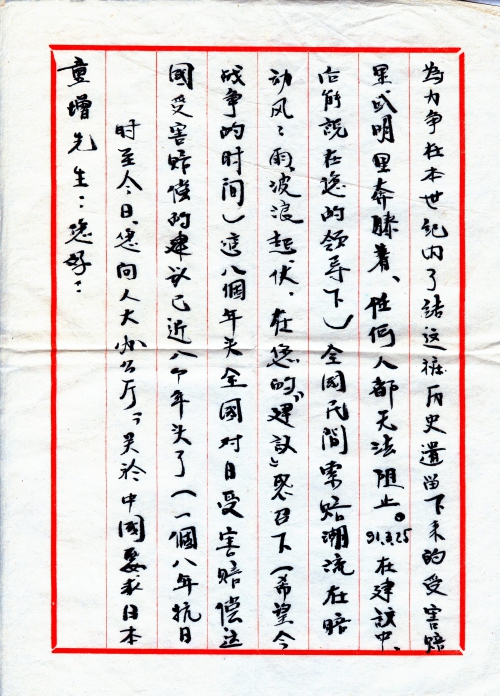 童增先生：您好：
时至今日、您向人大办公厅“关於中國要求日本
國受害赔偿的建议已近八个年头了（一個八年抗日
战争的时间）這八個年头全國对日受害赔偿运
动风、雨、波浪起、伏、在您的“建议”感召下（希望今
后能説在您的领导下）全國民間索赔潮流在暗
里或明里奔腾着、任何人都无法阻止。91.3.25在建议中、
為力争在本世纪内了结这桩历史遗留下来的受害赔